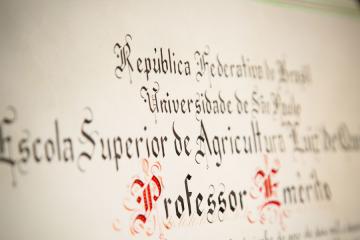 República Federativa do Brasil
Universidade de São Paulo
Escola Superior de Agricultura Luiz de
Professor Emérito